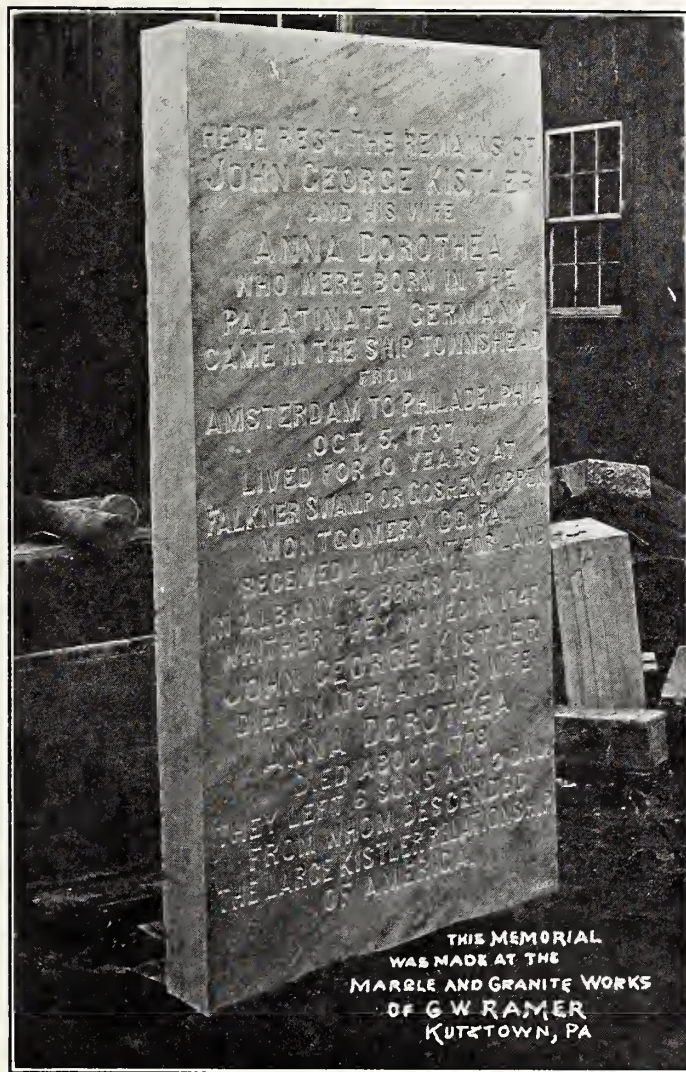 HERE REST THE REMAINS OF
JOHN GEORGE KISTLER
AND HIS WIFE
ANNA DOROTHEA
WHO WERE BORN IN THE
PALATINATE GERMANY
CAME IN THE SHIP TOWNSHEAD
FROM
AMSTERDAM TO PHILADELPHIA
OCT. 5, 1737
LIVED FOR 10 YEARS AT
FALKNER SWAMP OR GOSHENHOPPEN
MONTGOMERY CO. PA.
RECEIVED A WARRANT FOR LAND
IN ALBANY TP. BERKS CO.
WHITHER THEY MOVED IN 1747
JOHN GEORGE KISTLER
DIED IN 1767, AND HIS WIFE
ANNA DOROTHEA
DIED ABOUT
THEY LEFT 6 SONS AND
FROM WHOM DESCENDED
THE LARGE KISTLER RELATIONSHIP
OF AMERICA.
THIS MEMORIAL
WAS MADE AT THE
MARBLE AND GRANITE WORKS
OF G W RAMER
KUTZTOWN, PA